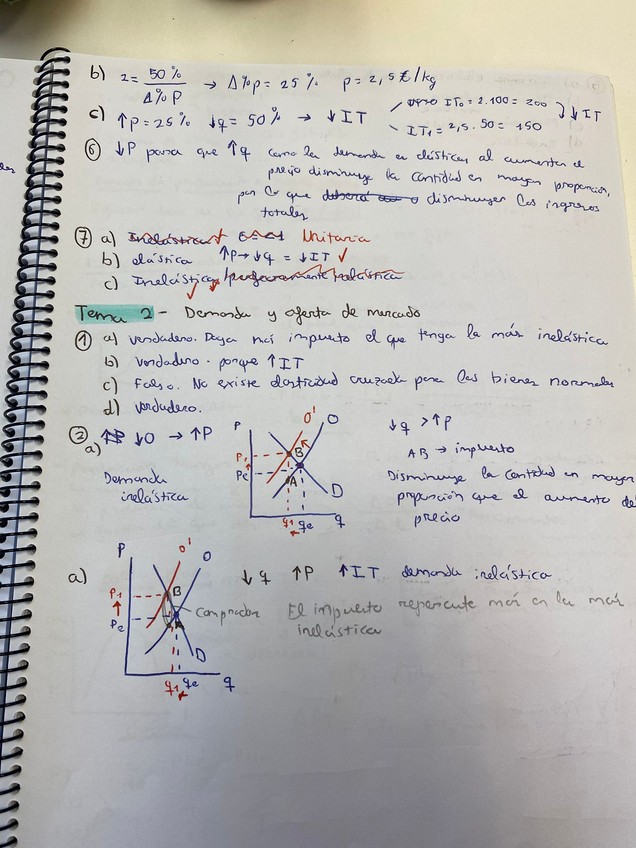 b) 2 = 50% / Δ%P → Δ%p = 25% p = 2,5€/kg
c) ↑p = 25% ↓q = 50% → ↓IT IT₀ = 2.100 = 200 ↓IT
IT₁ = 2,5 . 50 = 150
⑥ ↓P para que ↑q como la demanda es elástica al aumentar el
precio disminuye la cantidad en mayor proporción,
por lo que disminuyen los ingresos
totales
⑦ a) Inelástica Unitaria
b) elástica ↑P → ↓q = ↓IT ✓
c) Inelástica / perfectamente inelástica
Tema 2 - Demanda y oferta de mercado
① a) verdadero. Paga más impuesto el que tenga la más inelástica
b) verdadero. porque ↑IT
c) Falso. No existe elasticidad cruzada para los bienes normales
d) verdadero.
② ↓O → ↑P
a)
Demanda
inelástica
P O' O
P₁ B
Pe A
D
q₁ qe q
↓q > ↑p
AB → impuesto
Disminuye la cantidad en mayor
proporción que el aumento del
precio
a) ↓q ↑P ↑IT demanda inelástica
P O' O
P₁ B
Pe A
D
q₁ qe q
comprador
El impuesto repercute más en la más
inelástica